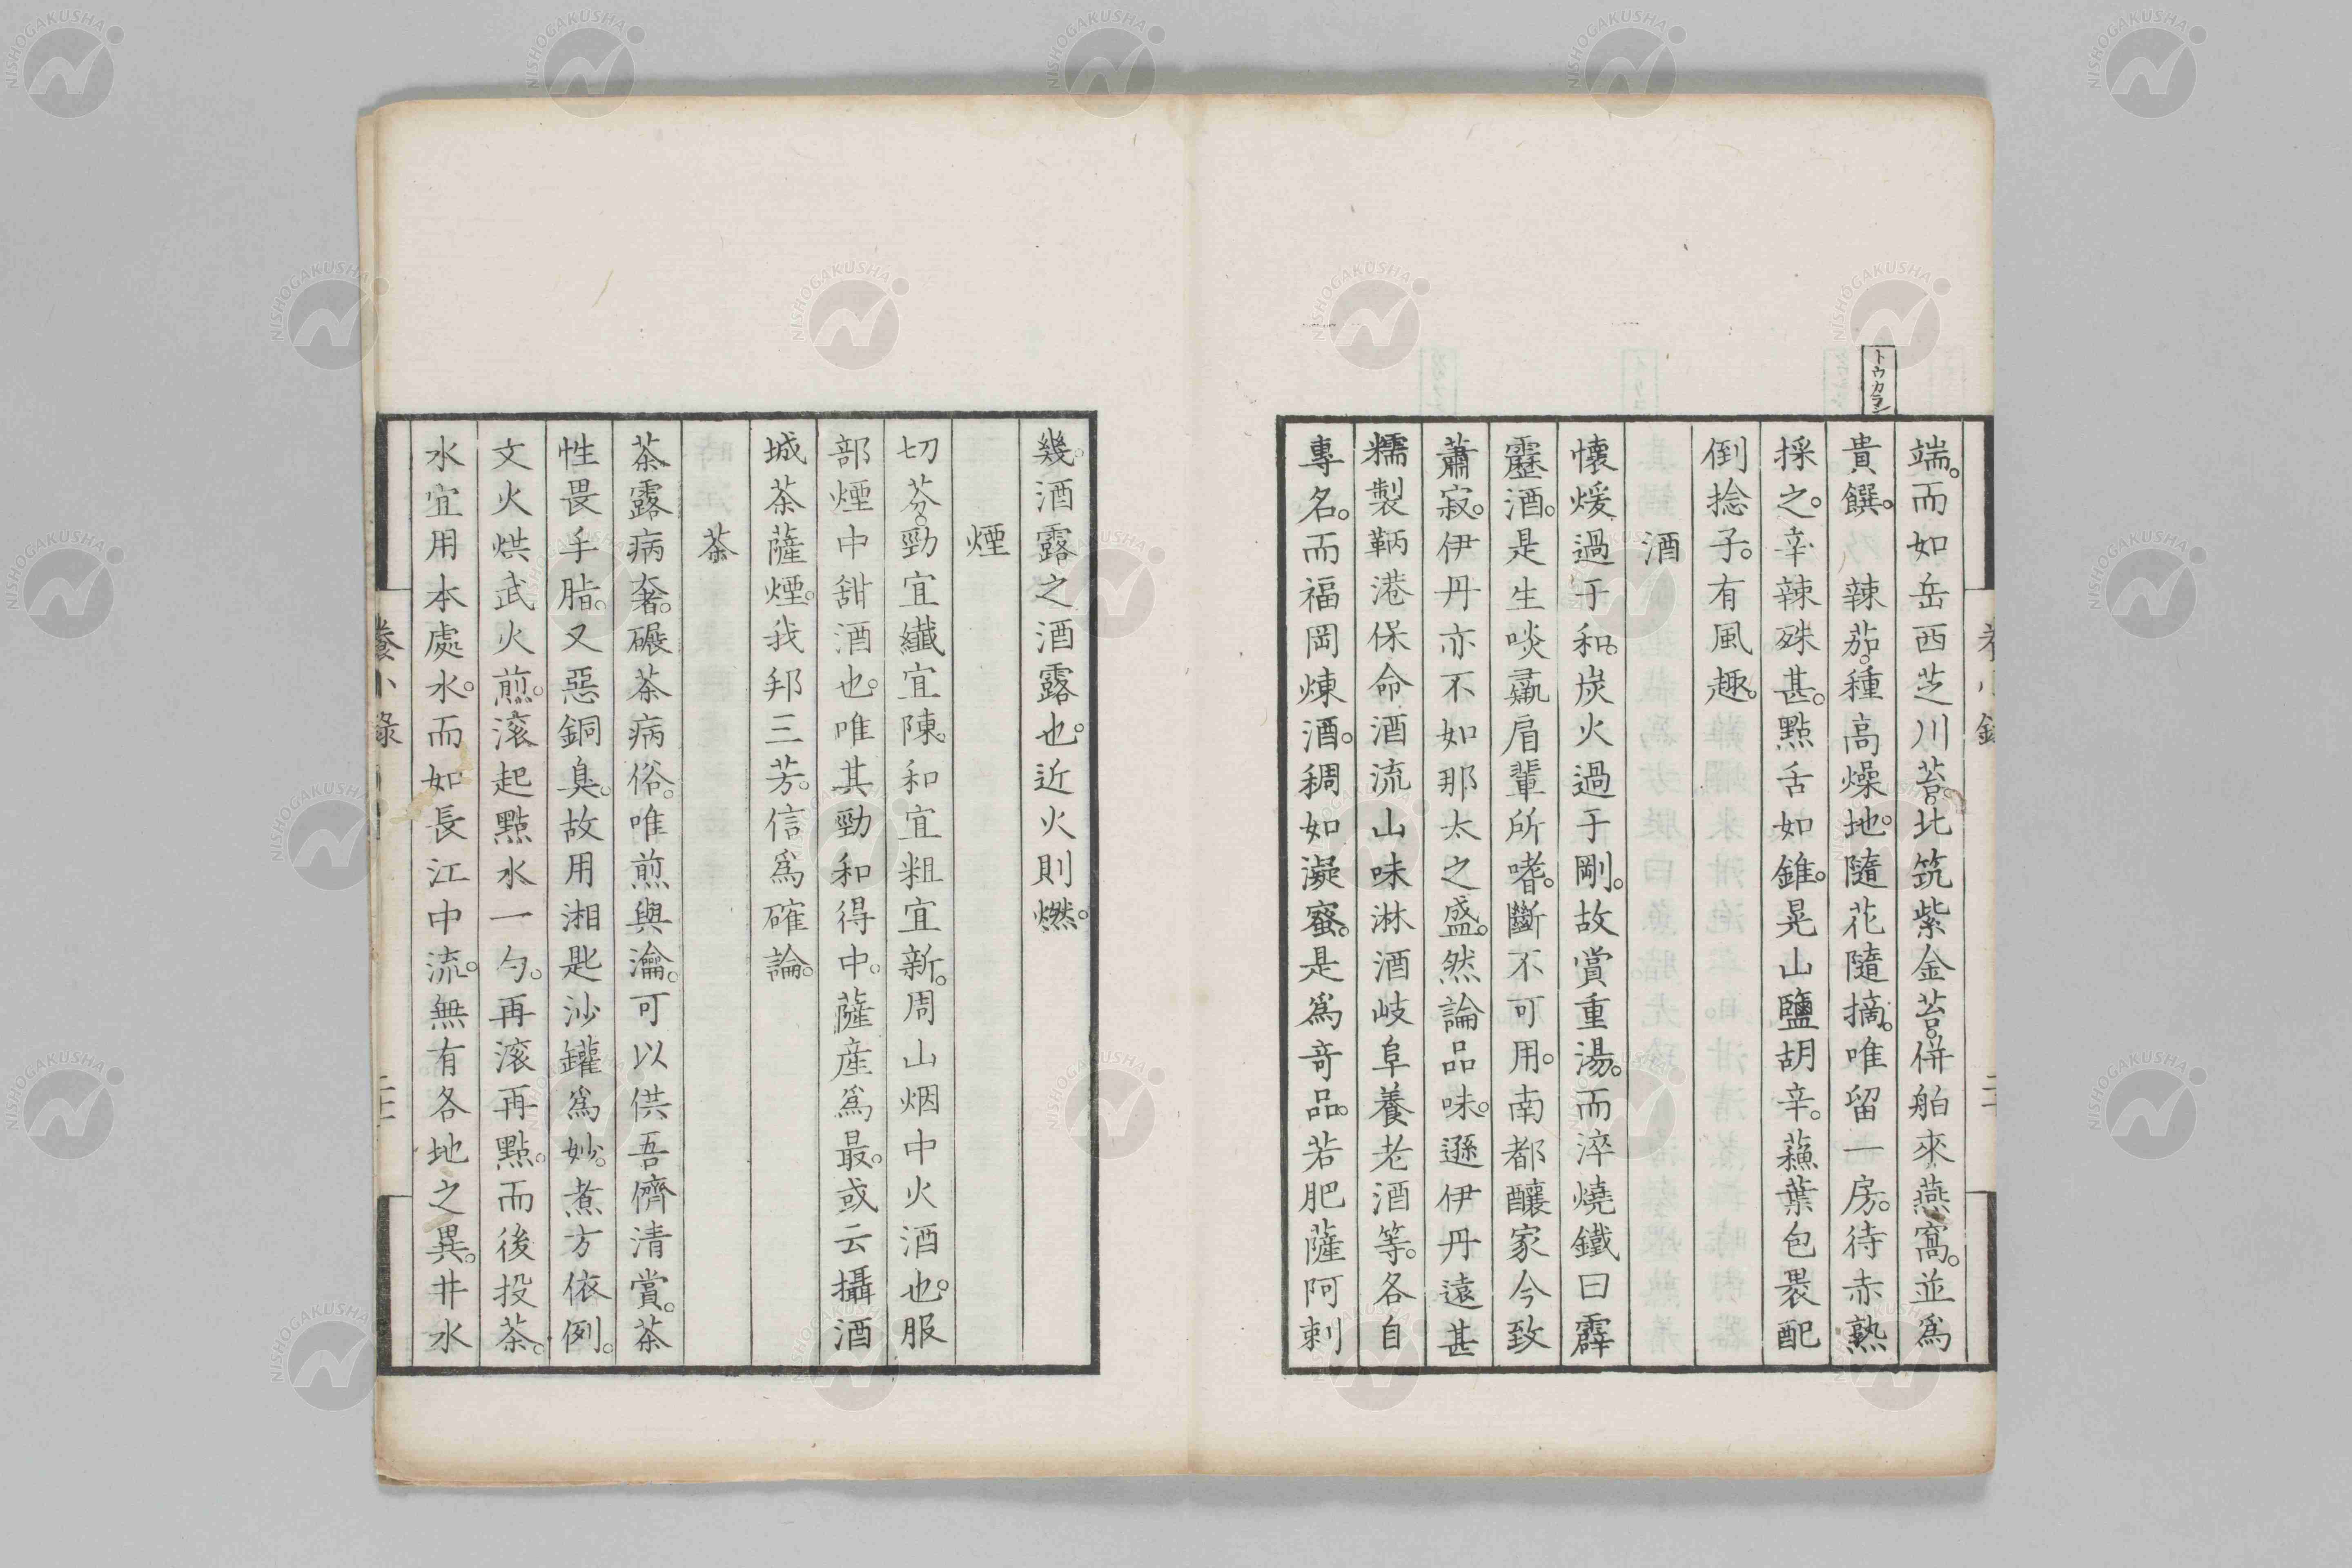 トウカラシ
端。而如岳西芝川苔。北筑紫金苔。併舶來燕窩。並爲
貴饌。　辣茄。種高燥地。隨花隨摘。唯留一房。待赤熟
採之。辛辣殊甚。點舌如錐。晃山鹽胡辛。蘓葉包褁配
倒捻子。有風趣。
酒
懷煖過于和。炭火過于剛。故賞重湯。而淬燒鐵曰霹
靂酒。是生啖彘肩輩所嗜。斷不可用。南都釀家今致
蕭寂。伊丹亦不如那太之盛。然論品味。遜伊丹遠甚
糯製鞆港保命酒流山味淋酒岐阜養老酒等。各自
專名。而福岡煉酒。稠如凝蜜。是爲奇品。若肥薩阿剌
幾。酒露之酒露也。近火則燃。
煙
切芬。勁宜纎宜陳。和宜粗宜新。周山烟中火酒也。服
部煙中甜酒也。唯其勁和得中。薩産爲最。或云攝酒
城茶薩煙。我邦三芳。信爲確論。
茶
茶露病奢。碾茶病俗。唯煎與瀹。可以供吾儕清賞。茶
性畏手脂。又惡銅臭。故用湘匙沙罐爲妙。煮方依例。
文火烘武火煎。滚起點水一勺。再滚再點。而後投茶。
水宜用本處水。而如長江中流。無有各地之異。井水
NISHOGAKUSHA